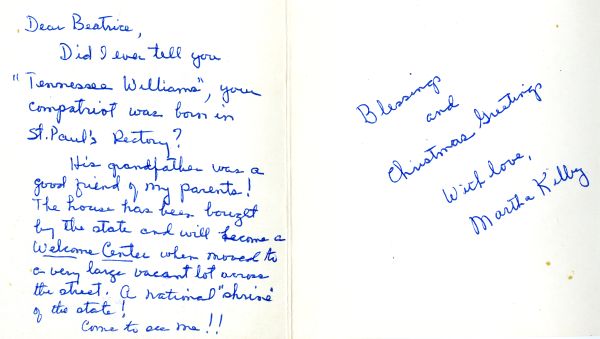 Dear Beatrice,
Did I ever tell you
"Tennessee Williams", your
compatriot was born in
St. Paul's Rectory?
His grandfather was a
good friend of my parents!
The house has been bought
by the state and will become a
Welcome Center when moved to
a very large vacant lot across
the street. A national "shrine"
of the state!
Come to see me!!
Blessings
and
Christmas Greetings
With love,
Martha Kilby